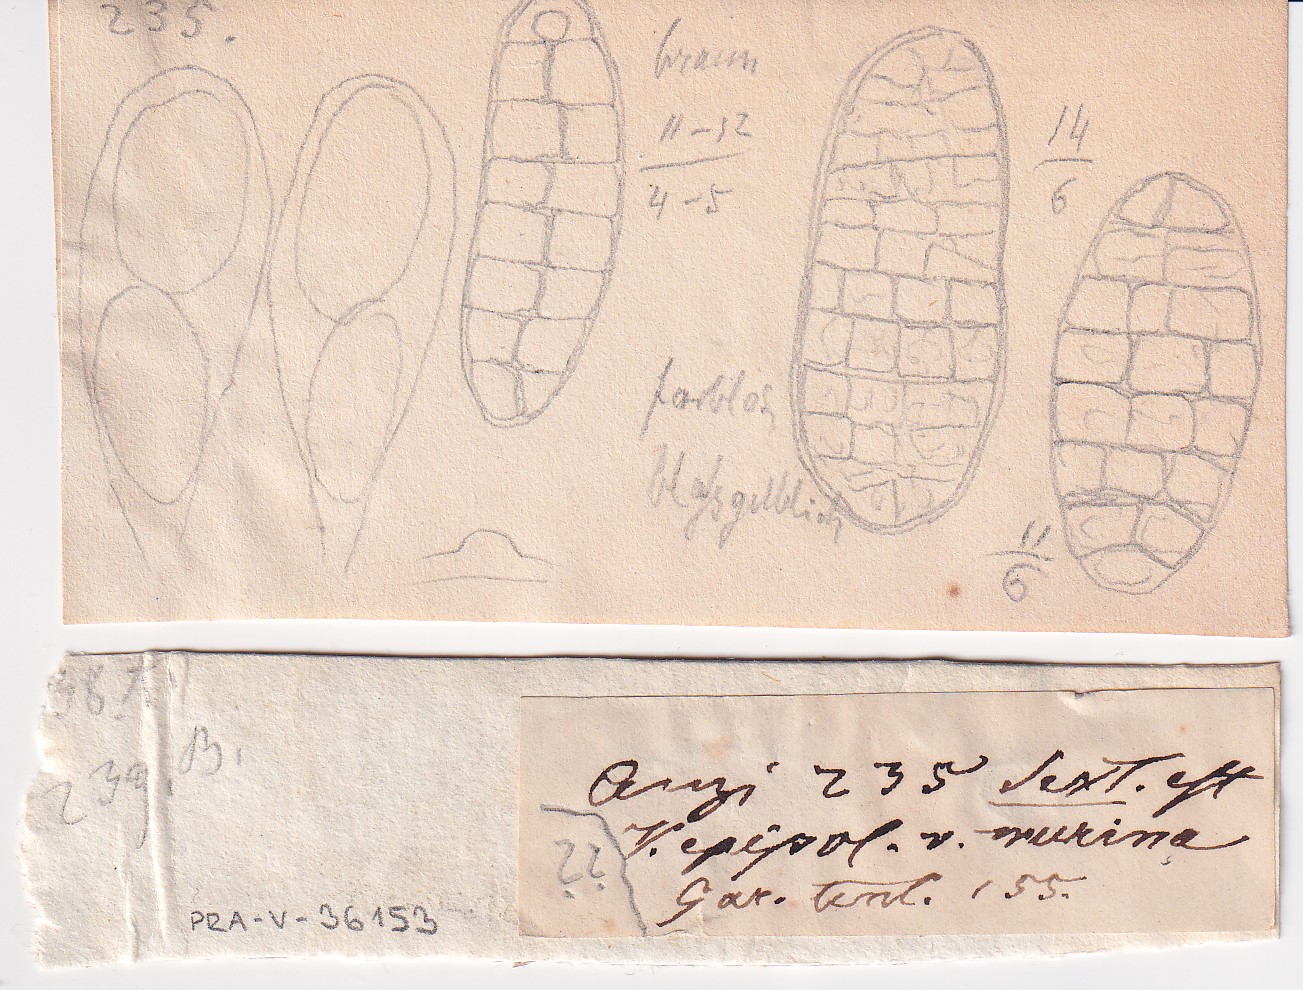 235.
braun
11-12
4-5
14
6
farblos
blaßgelblich
11
6
387
239
B.
Anzi 235 dext. est
V. epipol. v. murina
?? Gar. tent. 155.
PRA-V-36153